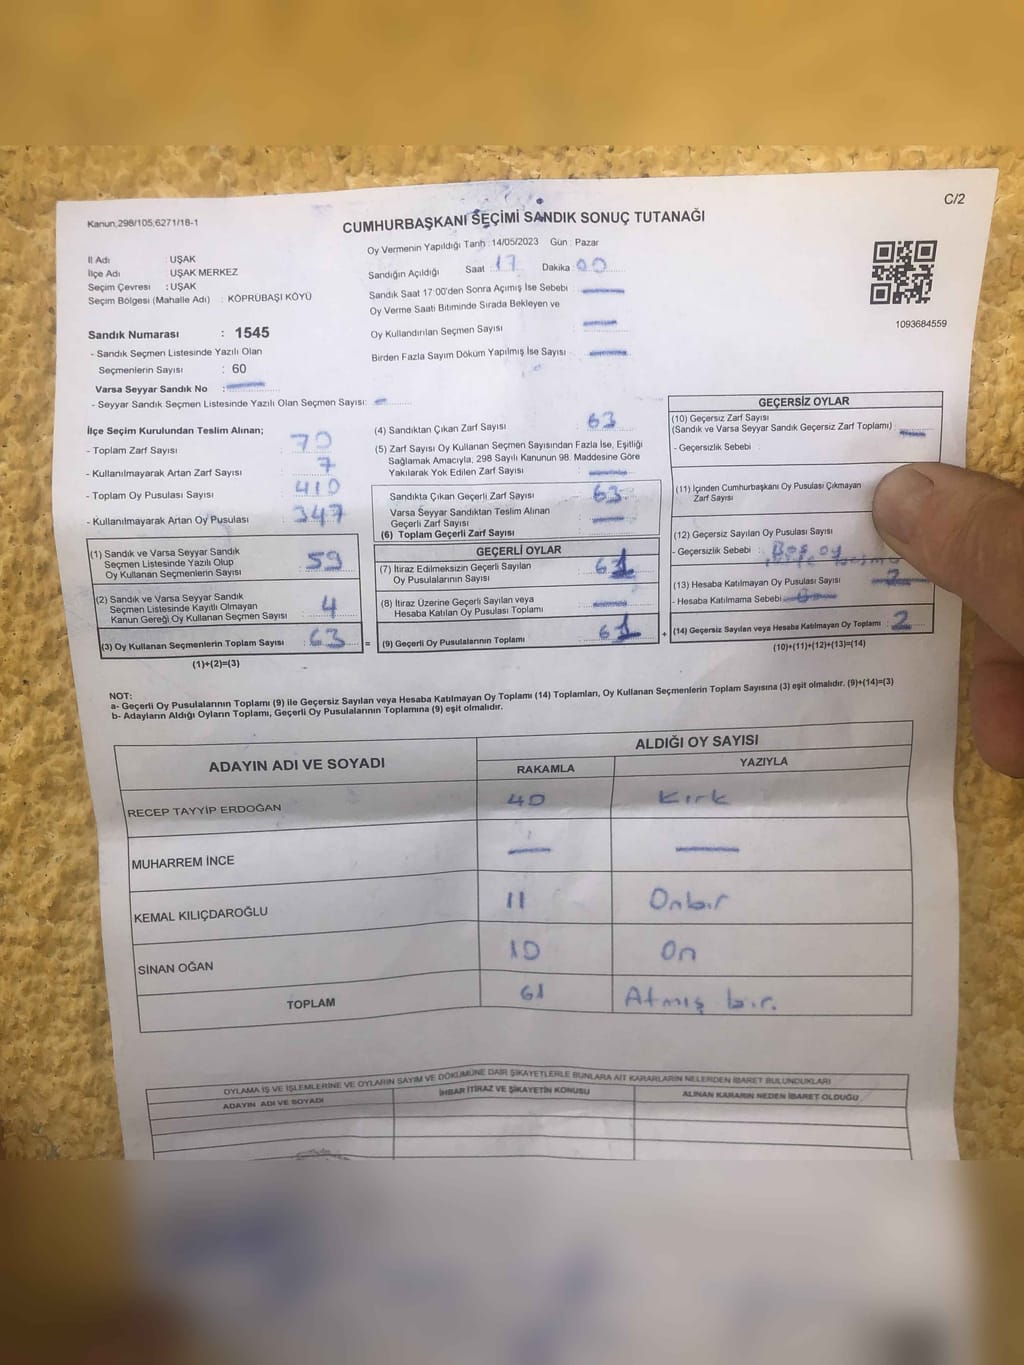 C/2
Kanun,298/105,6271/18-1
CUMHURBAŞKANI SEÇİMİ SANDIK SONUÇ TUTANAĞI
Oy Vermenin Yapıldığı Tarih : 14/05/2023 Gün : Pazar
İl Adı UŞAK
İlçe Adı UŞAK MERKEZ
Seçim Çevresi : UŞAK
Seçim Bölgesi (Mahalle Adı) : KÖPRÜBAŞI KÖYÜ
Sandığın Açıldığı Saat : 17 Dakika : 00
Sandık Saat 17:00'den Sonra Açmış İse Sebebi
Oy Verme Saati Bitiminde Sırada Bekleyen ve
Oy Kullandırılan Seçmen Sayısı
Birden Fazla Sayım Döküm Yapılmış İse Sayısı
1093684559
Sandık Numarası : 1545
- Sandık Seçmen Listesinde Yazılı Olan
Seçmenlerin Sayısı : 60
Varsa Seyyar Sandık No :
- Seyyar Sandık Seçmen Listesinde Yazılı Olan Seçmen Sayısı:
İlçe Seçim Kurulundan Teslim Alınan;
- Toplam Zarf Sayısı : 70
- Kullanılmayarak Artan Zarf Sayısı : 7
- Toplam Oy Pusulası Sayısı : 410
- Kullanılmayarak Artan Oy Pusulası : 347
(1) Sandık ve Varsa Seyyar Sandık
Seçmen Listesinde Yazılı Olup
Oy Kullanan Seçmenlerin Sayısı : 59
(2) Sandık ve Varsa Seyyar Sandık
Seçmen Listesinde Kayıtlı Olmayan
Kanun Gereği Oy Kullanan Seçmen Sayısı : 4
(3) Oy Kullanan Seçmenlerin Toplam Sayısı : 63
(1)+(2)=(3)
(4) Sandıktan Çıkan Zarf Sayısı : 63
(5) Zarf Sayısı Oy Kullanan Seçmen Sayısından Fazla İse, Eşitliği
Sağlamak Amacıyla, 298 Sayılı Kanunun 98. Maddesine Göre
Yakılarak Yok Edilen Zarf Sayısı
Sandıkta Çıkan Geçerli Zarf Sayısı : 63
Varsa Seyyar Sandıktan Teslim Alınan
Geçerli Zarf Sayısı
(6) Toplam Geçerli Zarf Sayısı
=
GEÇERLİ OYLAR
(7) İtiraz Edilmeksizin Geçerli Sayılan
Oy Pusulalarının Sayısı : 61
(8) İtiraz Üzerine Geçerli Sayılan veya
Hesaba Katılan Oy Pusulası Toplamı
(9) Geçerli Oy Pusulalarının Toplamı : 61
+
GEÇERSİZ OYLAR
(10) Geçersiz Zarf Sayısı
(Sandık ve Varsa Seyyar Sandık Geçersiz Zarf Toplamı) :
- Geçersizlik Sebebi :
(11) İçinden Cumhurbaşkanı Oy Pusulası Çıkmayan
Zarf Sayısı
(12) Geçersiz Sayılan Oy Pusulası Sayısı
- Geçersizlik Sebebi : Boş oy
(13) Hesaba Katılmayan Oy Pusulası Sayısı
- Hesaba Katılmama Sebebi :
(14) Geçersiz Sayılan veya Hesaba Katılmayan Oy Toplamı : 2
(10)+(11)+(12)+(13)=(14)
NOT:
a- Geçerli Oy Pusulalarının Toplamı (9) ile Geçersiz Sayılan veya Hesaba Katılmayan Oy Toplamı (14) Toplamları, Oy Kullanan Seçmenlerin Toplam Sayısına (3) eşit olmalıdır. (9)+(14)=(3)
b- Adayların Aldığı Oyların Toplamı, Geçerli Oy Pusulalarının Toplamına (9) eşit olmalıdır.
ADAYIN ADI VE SOYADI
ALDIĞI OY SAYISI
RAKAMLA YAZIYLA
RECEP TAYYİP ERDOĞAN 40 Kırk
MUHARREM İNCE
KEMAL KILIÇDAROĞLU 11 Onbir
SİNAN OĞAN 10 On
TOPLAM 61 Atmış bir.
OYLAMA İŞ VE İŞLEMLERİNE VE OYLARIN SAYIM VE DÖKÜMÜNE DAİR ŞİKAYETLERLE BUNLARA AİT KARARLARIN NELERDEN İBARET BULUNDUKLARI
ADAYIN ADI VE SOYADI İHBAR İTİRAZ VE ŞİKAYETİN KONUSU ALINAN KARARIN NEDEN İBARET OLDUĞU